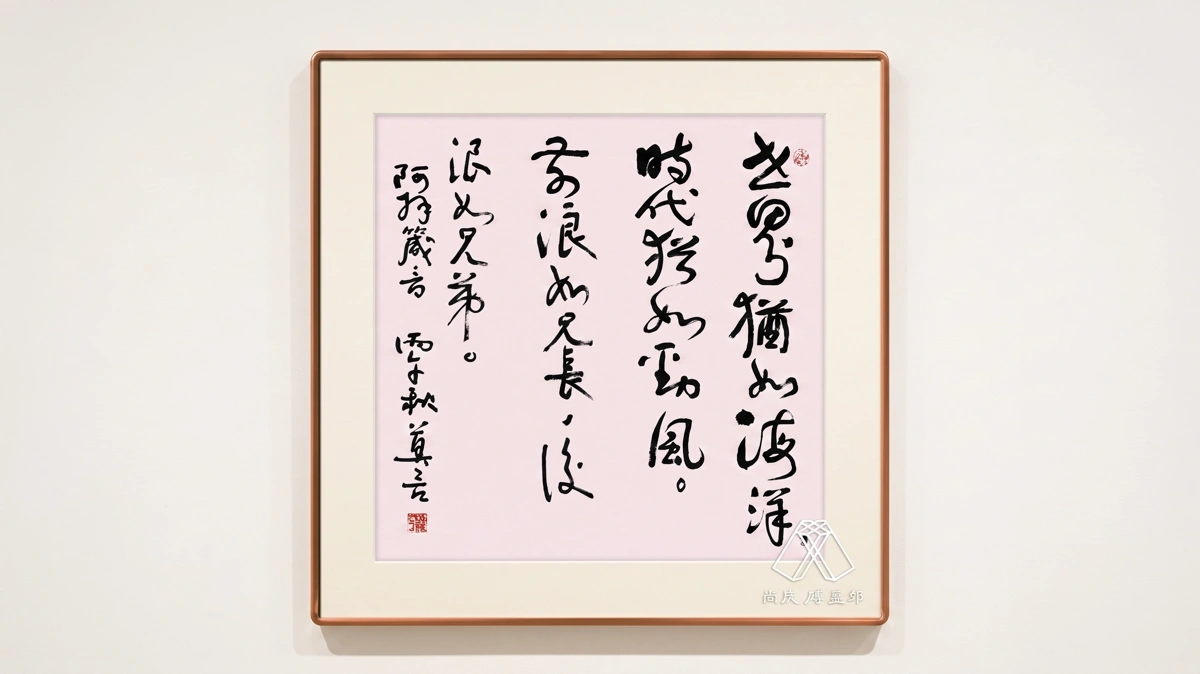 世界猶如海洋，
時代猶如勁風。
前浪如兄長，後
浪如兄弟。
阿拜箴言 丙午秋 莫言